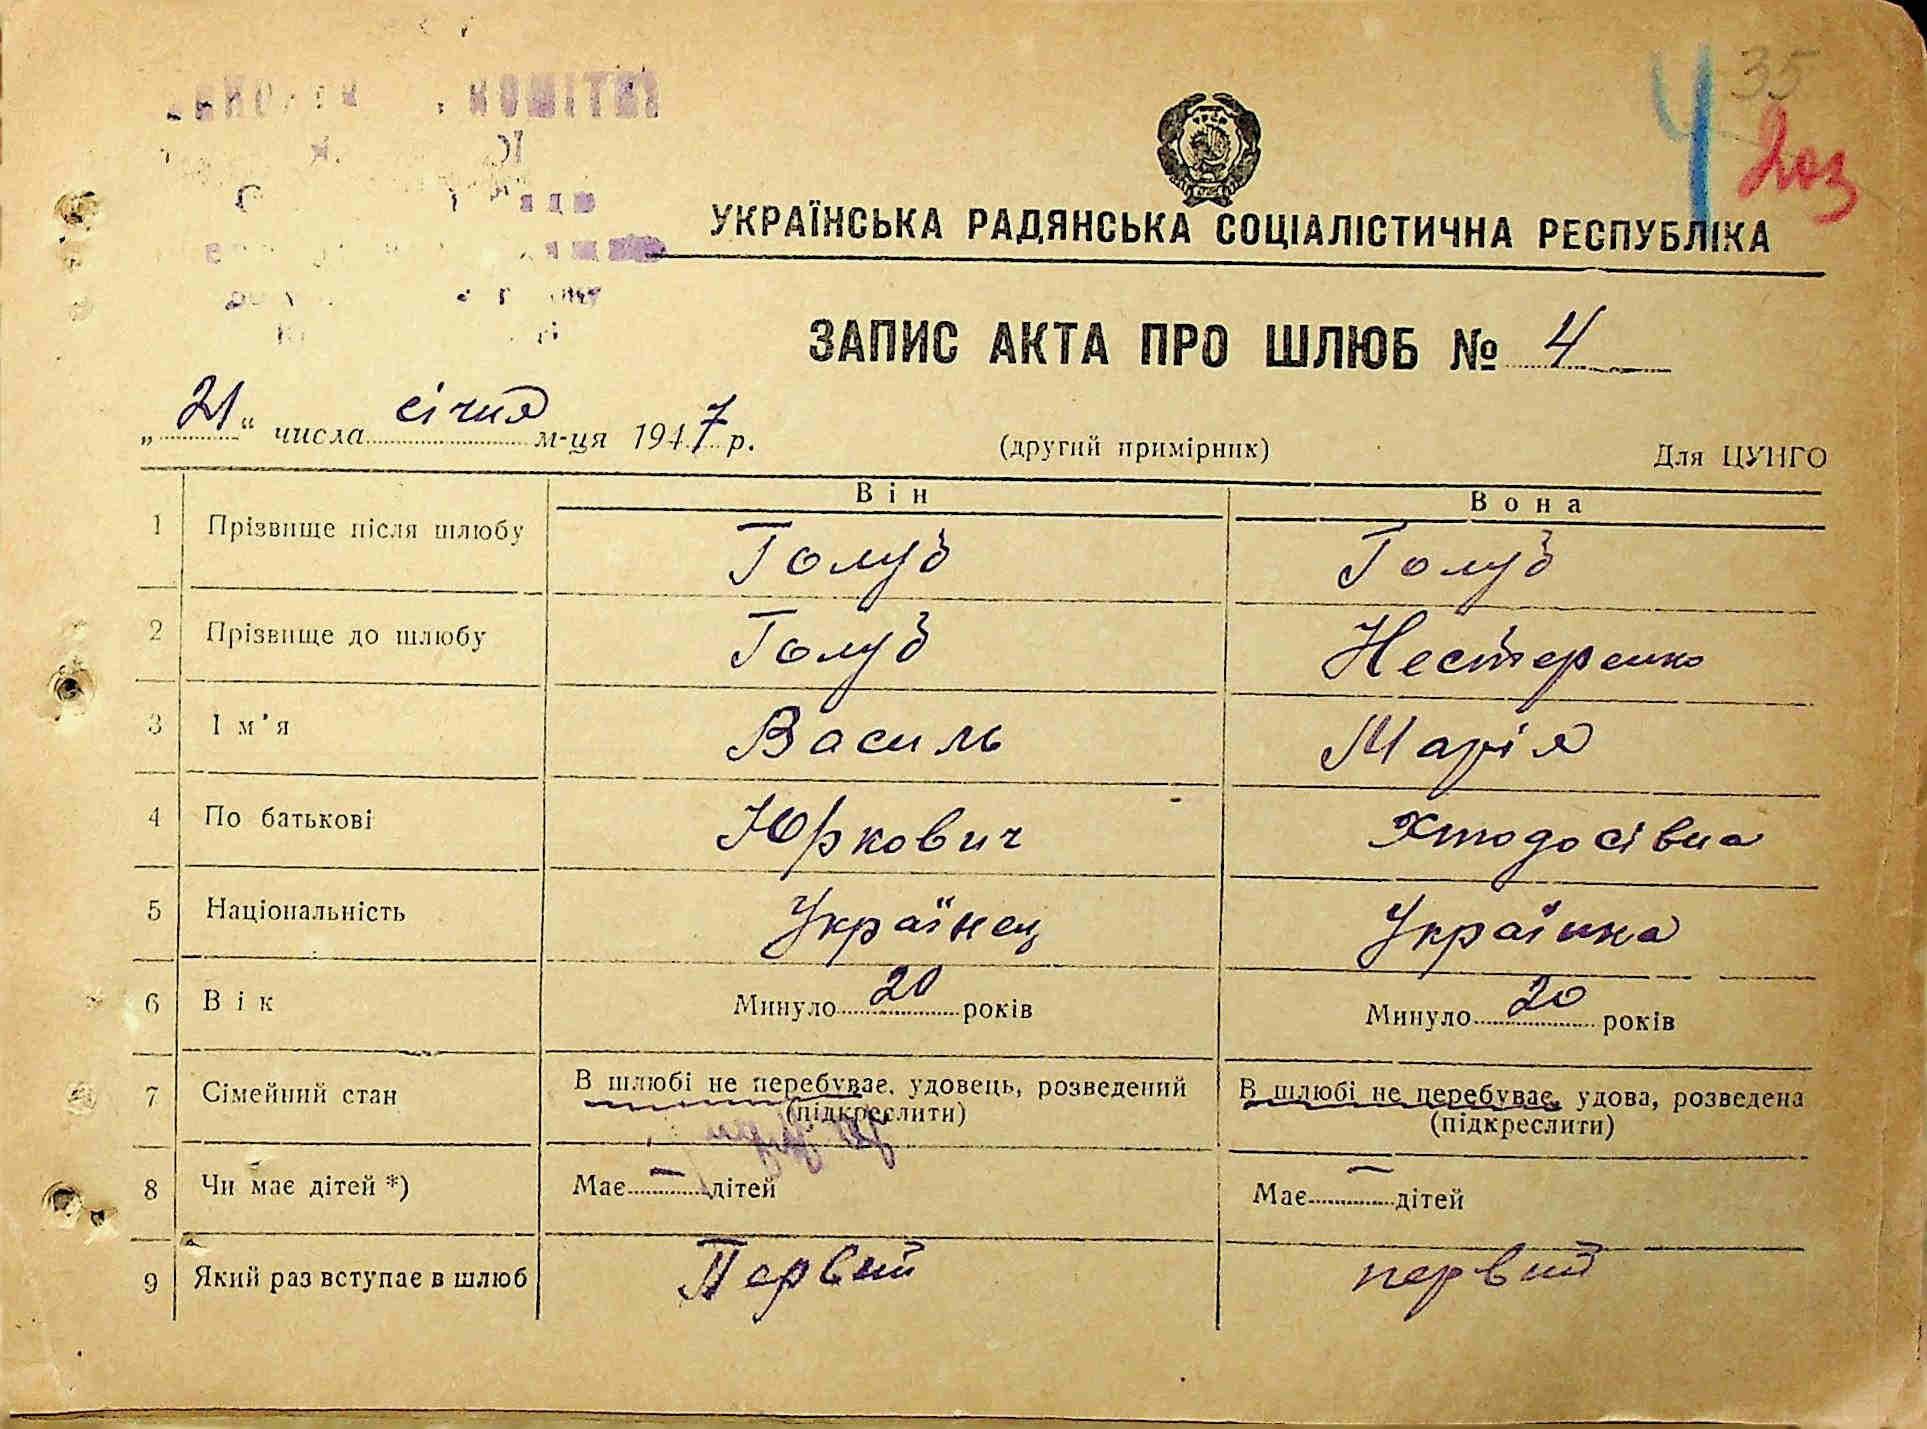 4 35
УКРАЇНСЬКА РАДЯНСЬКА СОЦІАЛІСТИЧНА РЕСПУБЛІКА
ЗАПИС АКТА ПРО ШЛЮБ № 4
„21“ числа січня м-ця 1947 р. (другий примірник) Для ЦУНГО
Він Вона
1 Прізвище після шлюбу Голуб Голуб
2 Прізвище до шлюбу Голуб Нестеренко
3 Ім'я Василь Марія
4 По батькові Юркович Хтодосівна
5 Національність Українец Українка
6 Вік Минуло 20 років Минуло 20 років
7 Сімейний стан В шлюбі не перебуває, удовець, розведений В шлюбі не перебуває, удова, розведена
(підкреслити) (підкреслити)
8 Чи має дітей *) Має – дітей Має – дітей
9 Який раз вступає в шлюб Первий первий